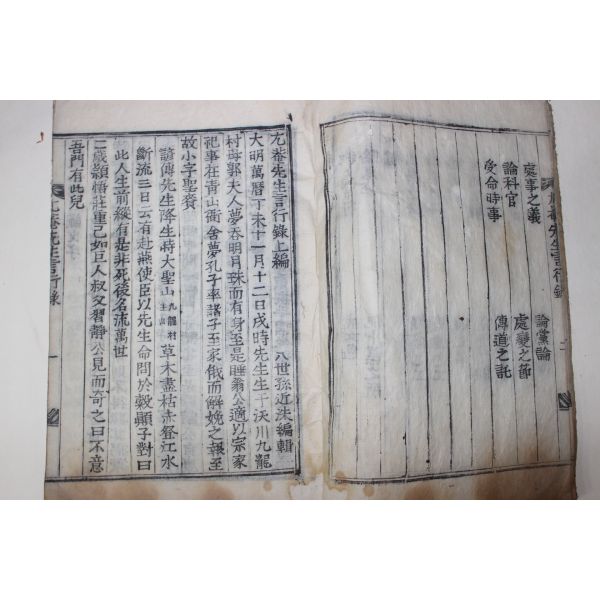 尤菴先生言行錄 二
處事之義 論黨論
論科官 處變之節
受命時事 傳道之託
尤菴先生言行錄上編 八世孫近洙編輯
大明萬曆丁未十一月十二日戌時先生生于沃川九龍
村母郭夫人夢吞明月珠而有身至是睡翁公適以宗家
祀事在青山衙舍夢孔子率諸子至家俄而解娩之報至
故小字聖賚
諺傳先生降生時大聖山九龍村主山草木盡枯赤登江水
斷流三日云有赴燕使臣以先生命問於穀顚子對曰
此人生前縱有是非死後名流萬世
二歲穎悟莊重已如巨人叔父習靜公見而奇之曰不意
吾門有此兒
尤菴先生言行錄 一